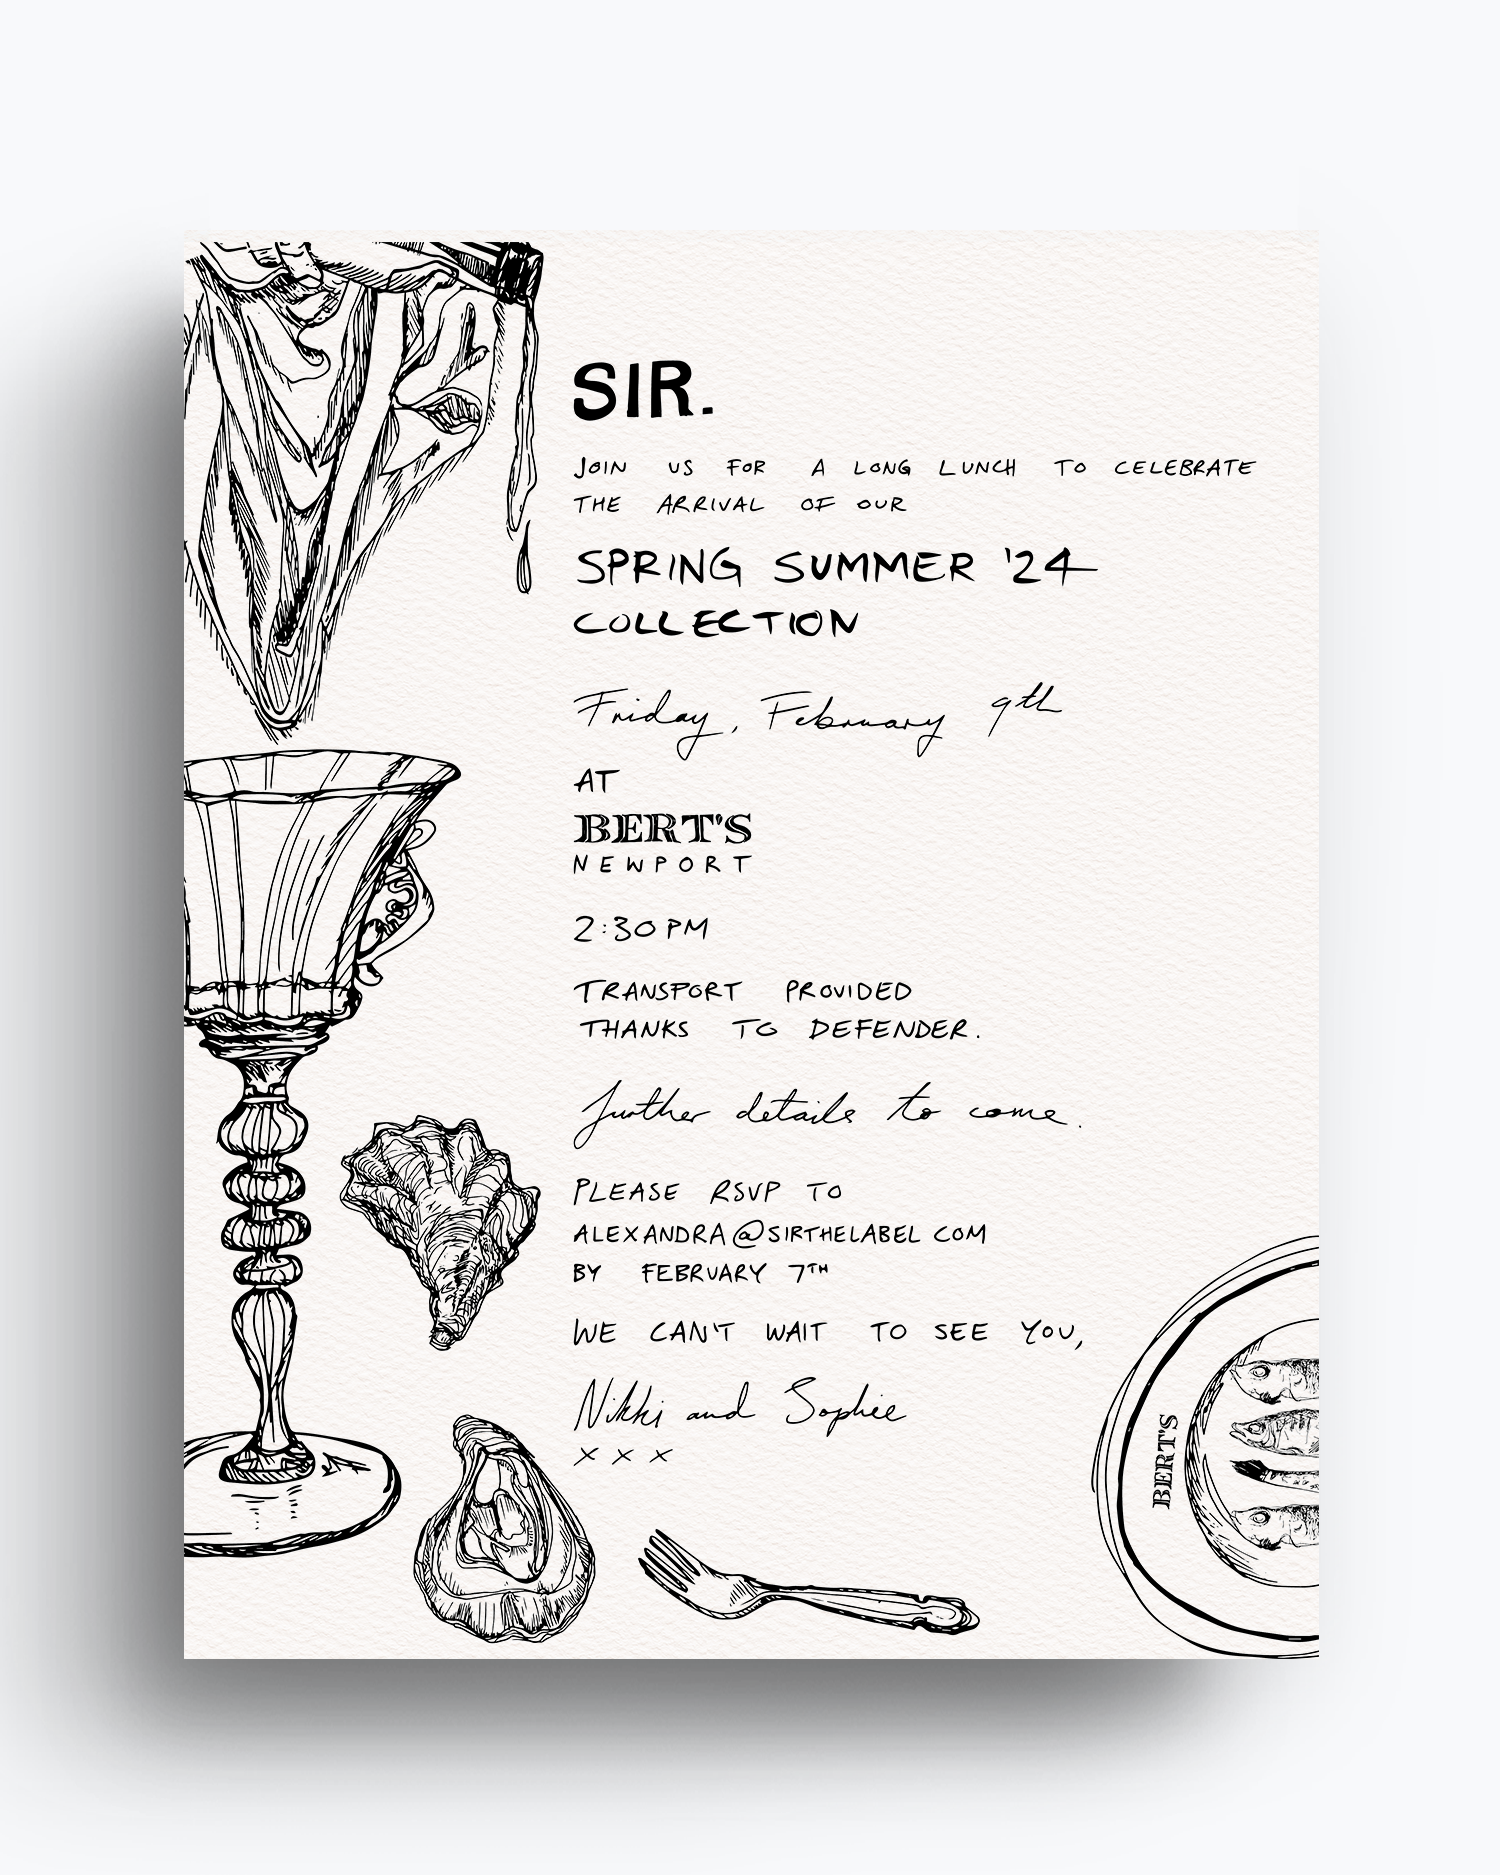 SIR.
JOIN US FOR A LONG LUNCH TO CELEBRATE
THE ARRIVAL OF OUR
SPRING SUMMER '24
COLLECTION
Friday, February 9th
AT
BERT'S
NEWPORT
2:30PM
TRANSPORT PROVIDED
THANKS TO DEFENDER.
further details to come.
PLEASE RSVP TO
ALEXANDRA@SIRTHELABEL COM
BY FEBRUARY 7TH
WE CAN'T WAIT TO SEE YOU,
Nikki and Sophie
x x x
BERT'S